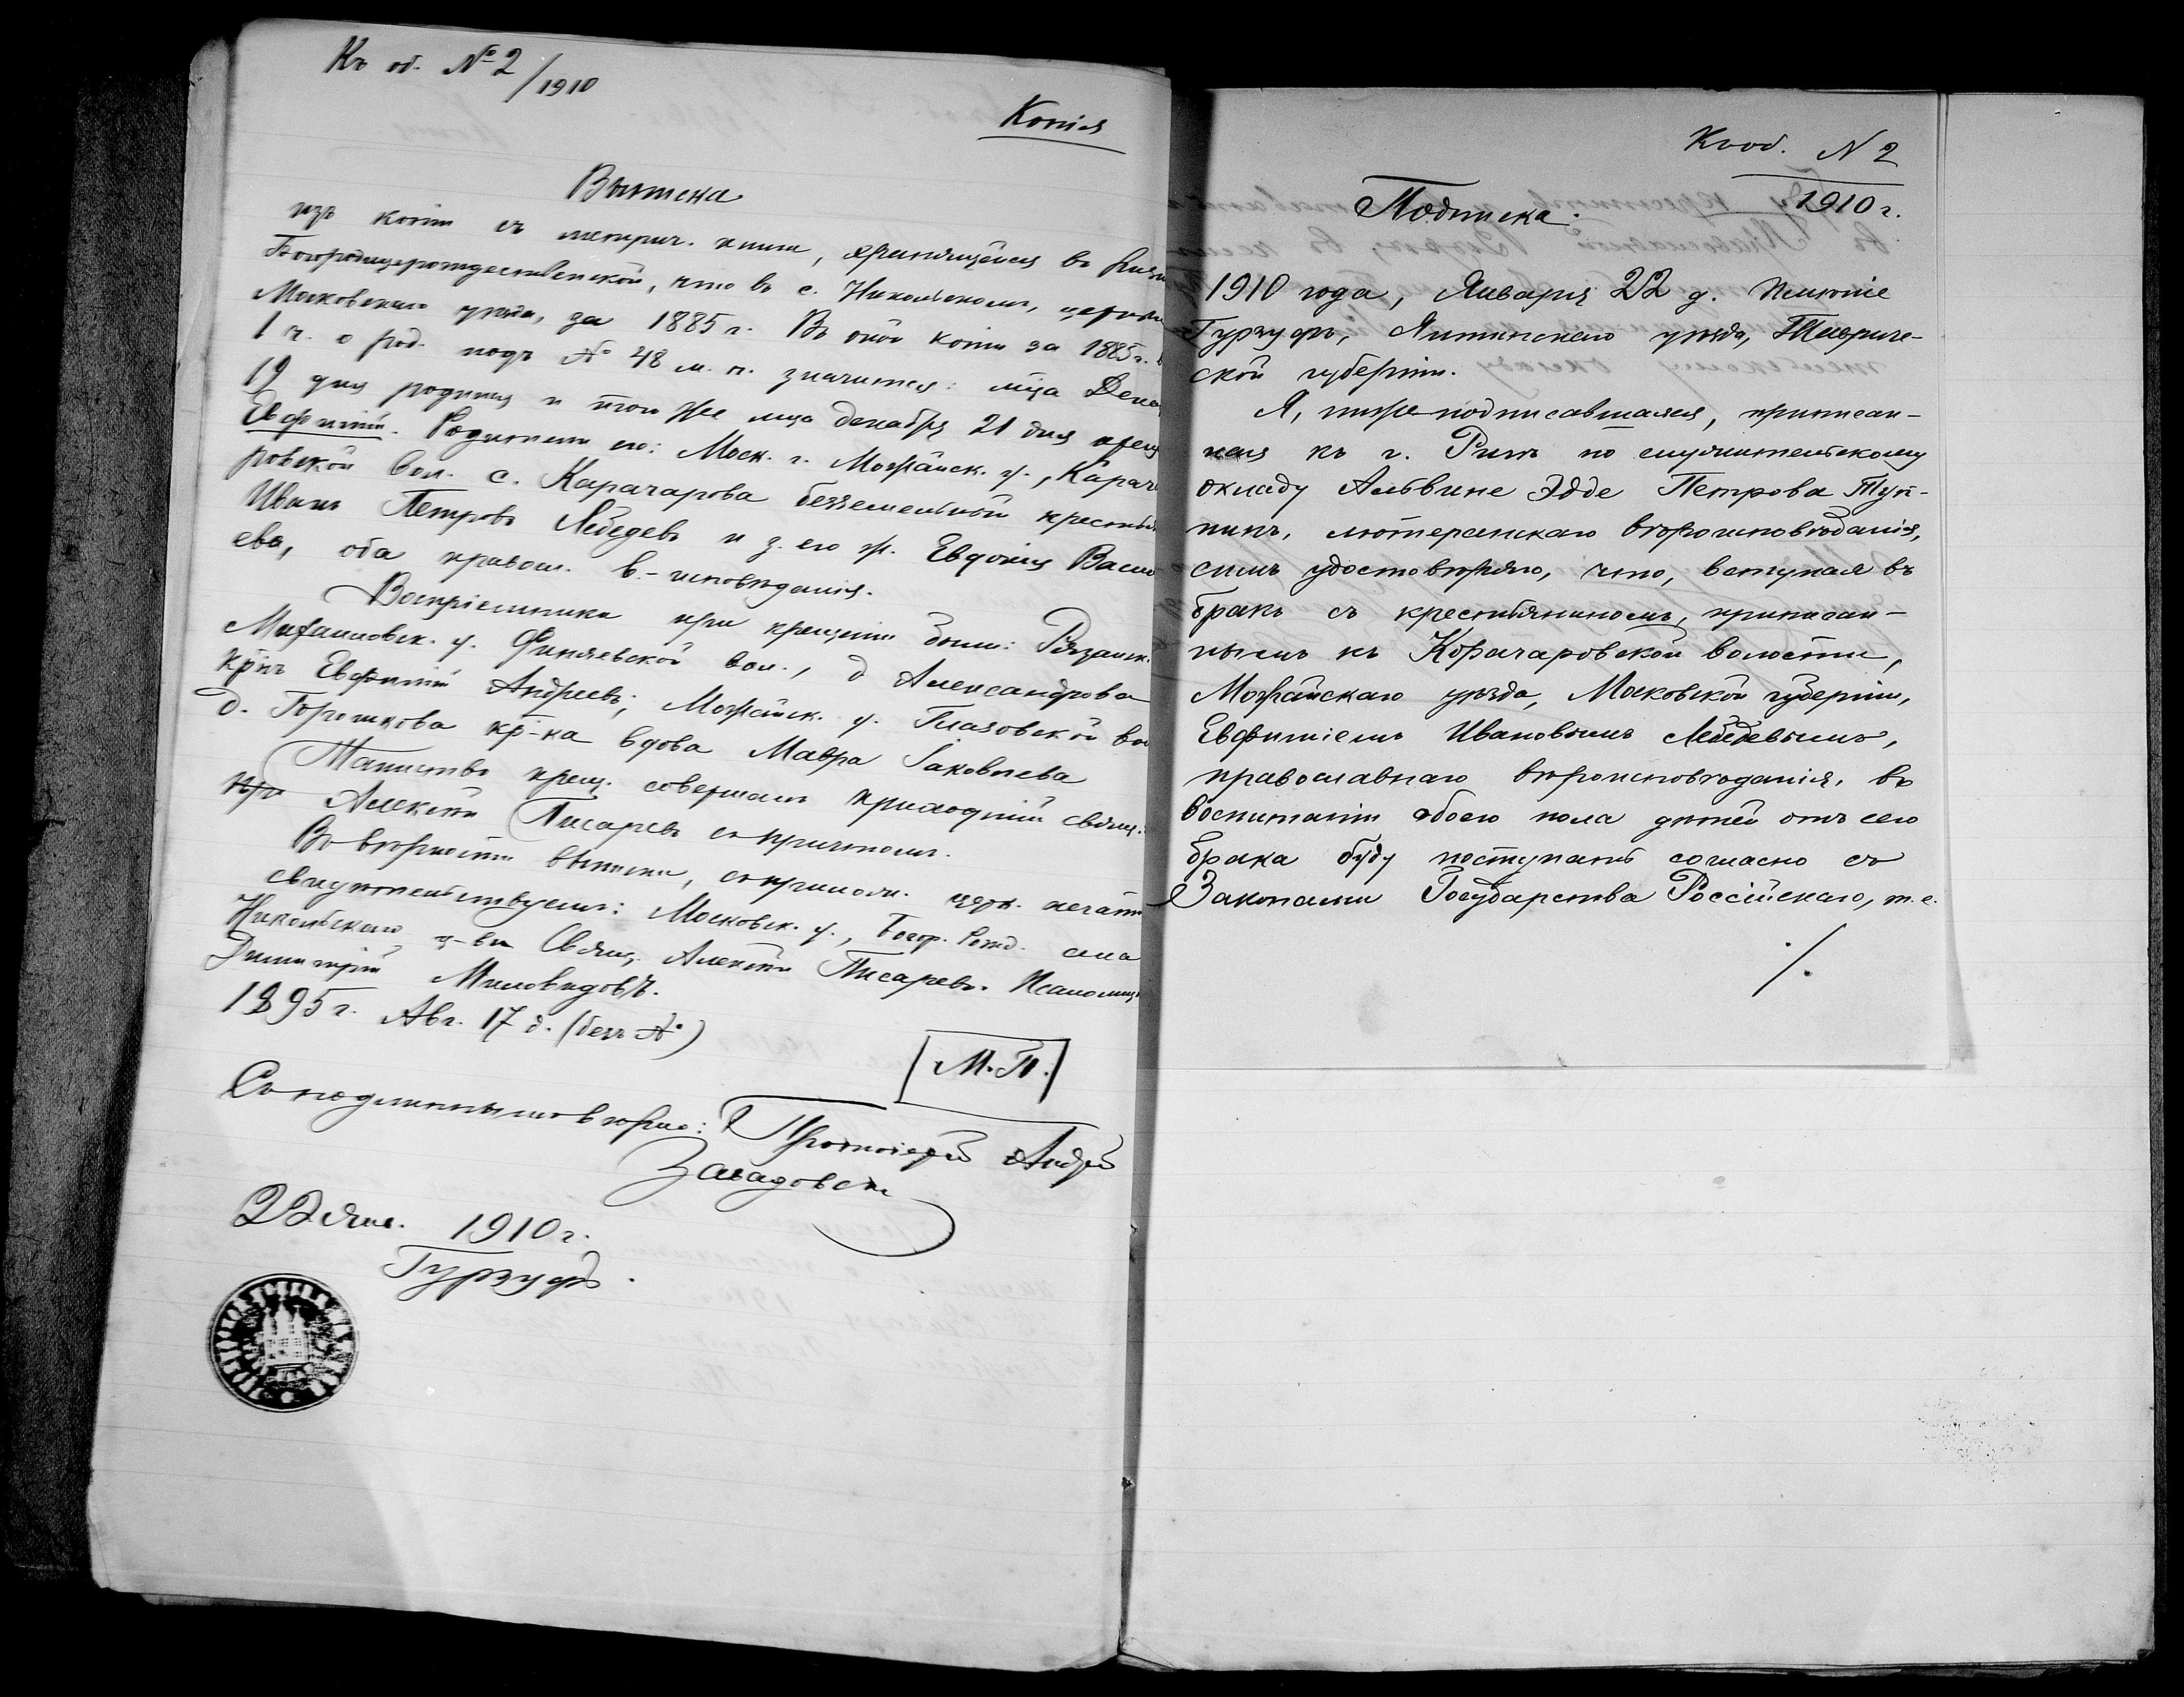 Къ об. № 2/1910
Копія
Выписка
изъ копіи съ метрич. книги, хранящейся въ
Богородицерождественской, что въ с. Никольскомъ, церкви
Московскаго уѣзда, за 1885 г. Въ оной копіи за 1885 г.
1 ч. о род. подъ № 48 м. п. значится: м̃ца Дека
19 дня родился и того же м̃ца декабря 21 дня крещ
Евфимій. Родители его: Моск. г. Можайск. у., Карач
ровской вол. с. Карачарова безземельный крестья
Иванъ Петровъ Лебедевъ и з. его ж. Евдокія Васи
ева, оба правосл. в.-исповѣданія.
Воспріемники при крещеніи были: Рязанск.
Михайловск. у. Финяевской вол., д Александрова
кр̃нъ Евфимій Андреевъ; Можайск. у. Глазовской во
д. Горошкова кр-ка вдова Мавра Іаковлева
Таинство крещ. совершалъ приходскій свящ.
Алексѣй Писаревъ съ причтомъ.
Въ вѣрности выписки, съ прилож. церк. печати
свидѣтельствуемъ: Московск. у., Богор. Рожд. села
Никольскаго ц-ви Свящ. Алексѣй Писаревъ. Псаломщ
Димитрій Миловидовъ.
1895 г. Авг. 17 д. (безъ №)
М.П.
Съ подлиннымъ вѣрно: Протоіерей Андрей
Завадовск
22 Янв. 1910 г.
Гурзуфъ.
Къ об. N 2
1910 г.
Подписка.
1910 года, Января 22 д. Мѣстѣчко
Гурзуфъ, Ялтинскаго уѣзда, Тавриче-
ской губерніи.
Я, нижеподписавшаяся, приписан-
ная къ г. Ригѣ по служительскому
окладу Альвине Эдде Петрова
лютеранскаго вѣроисповѣданія,
симъ удостовѣряю, что, вступая въ
бракъ съ крестьяниномъ, приписан-
нымъ къ Корачаровской волости,
Можайскаго уѣзда, Московской губерніи,
Евфиміемъ Ивановымъ Лебедевымъ,
православнаго вѣроисповѣданія, въ
воспитаніи обоего пола дѣтей отъ сего
брака буду поступать согласно съ
Законами Государства Россійскаго, т. е.
./.